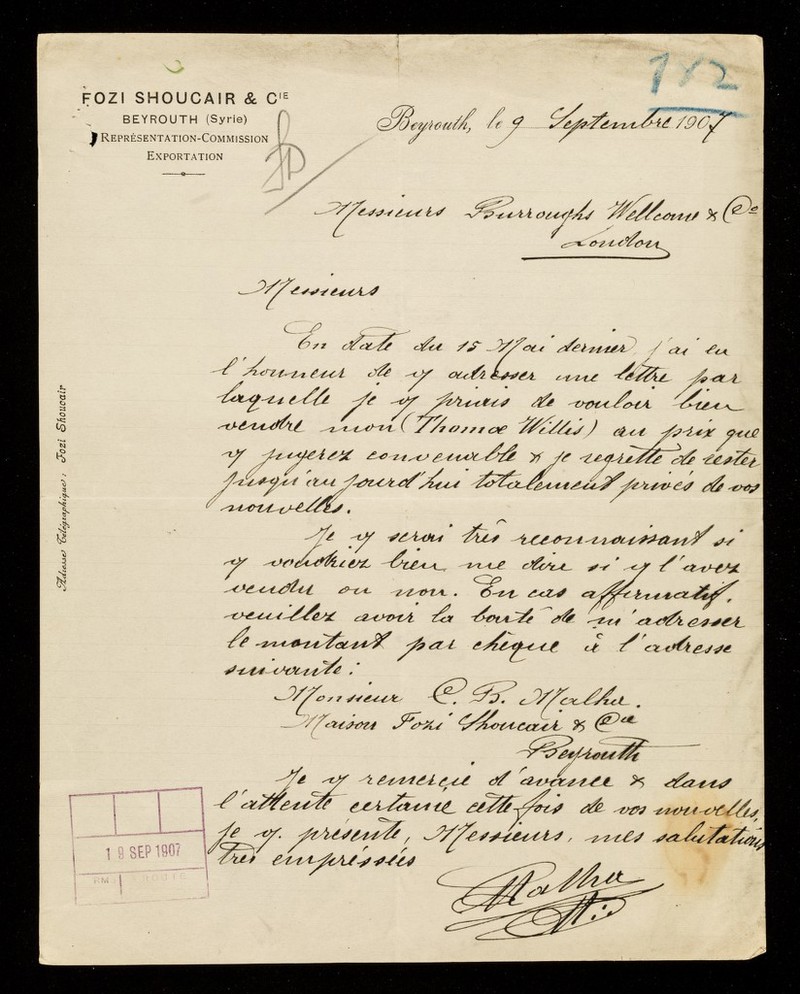 182
FOZI SHOUCAIR & CIE
BEYROUTH (Syrie)
REPRÉSENTATION-COMMISSION
EXPORTATION
Beyrouth, le 9 Septembre 1907
Messieurs Burroughs Wellcome & Co
London
Messieurs
En date du 15 Mai dernier j'ai eu
l'honneur de v adresser une lettre par
laquelle je v priais de vouloir bien
vendre mon (Thomae Willis) au prix que
v jugerez convenable & je regrette de rester
jusqu'au jourd'hui totalement privés de vos
nouvelles.
Je v serai très reconnaissant si
v voudriez bien me dire si v l'avez
vendu ou non. En cas affirmatif,
veuillez avoir la bonté de m'adresser
le montant par chèque à l'adresse
suivante:
Monsieur C. B. Malha.
Maison Fozi Shoucair & Cie
Beyrouth
Je v remerçie d'avance & dans
l'attente certaine cette fois de vos nouvelles,
je v. présente, Messieurs, mes salutations
très empréssées
Malha
Adresse Télégraphique: Fozi Shoucair
19 SEP 1907